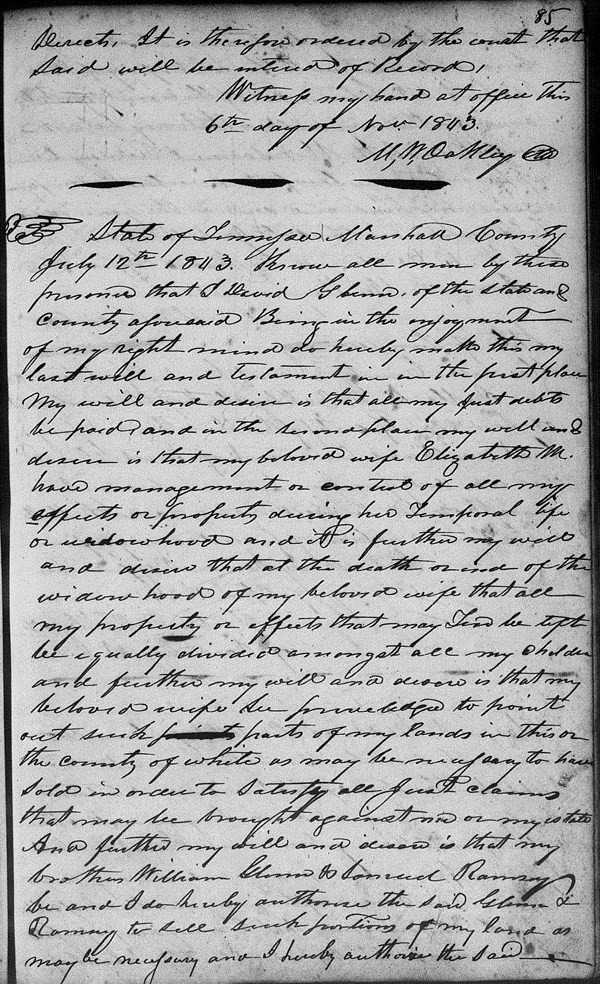 85
Directs, It is therefore ordered by the court that
said will be entered of Record,
Witness my hand at office this
6th day of Nov. 1843.
M, W, Oakley
State of Tennessee Marshall County
July 12th 1843. Know all men by these
presence that I David Glenn, of the state and
County aforesaid Being in the enjoyment
of my right mind do hereby make this my
last will and testament in in the first place
My will and desire is that all my just debts
be paid, and in the second place my will and
desire is that my beloved wife Elizabeth M.
have management or control of all my
effects or property during her Temporal life
or widowhood and it is further my will
and desire that at the death or end of the
widow hood of my beloved wife that all
my property or effects that may be left
be equally divided amongst all my
and further my will and desire is that my
beloved wife be priviledged to point
out such parts of my lands in this or
the county of white as may be necessary to have
Sold in order to satisfy all Just claims
that may be brought against me or my estate
And further my will and desire is that my
brother William Glenn & Samuel Ramsey
be and I do hereby authorise the said Glenn &
Ramsey to sell such portions of my land as
may be necessary and I hereby authorise the said